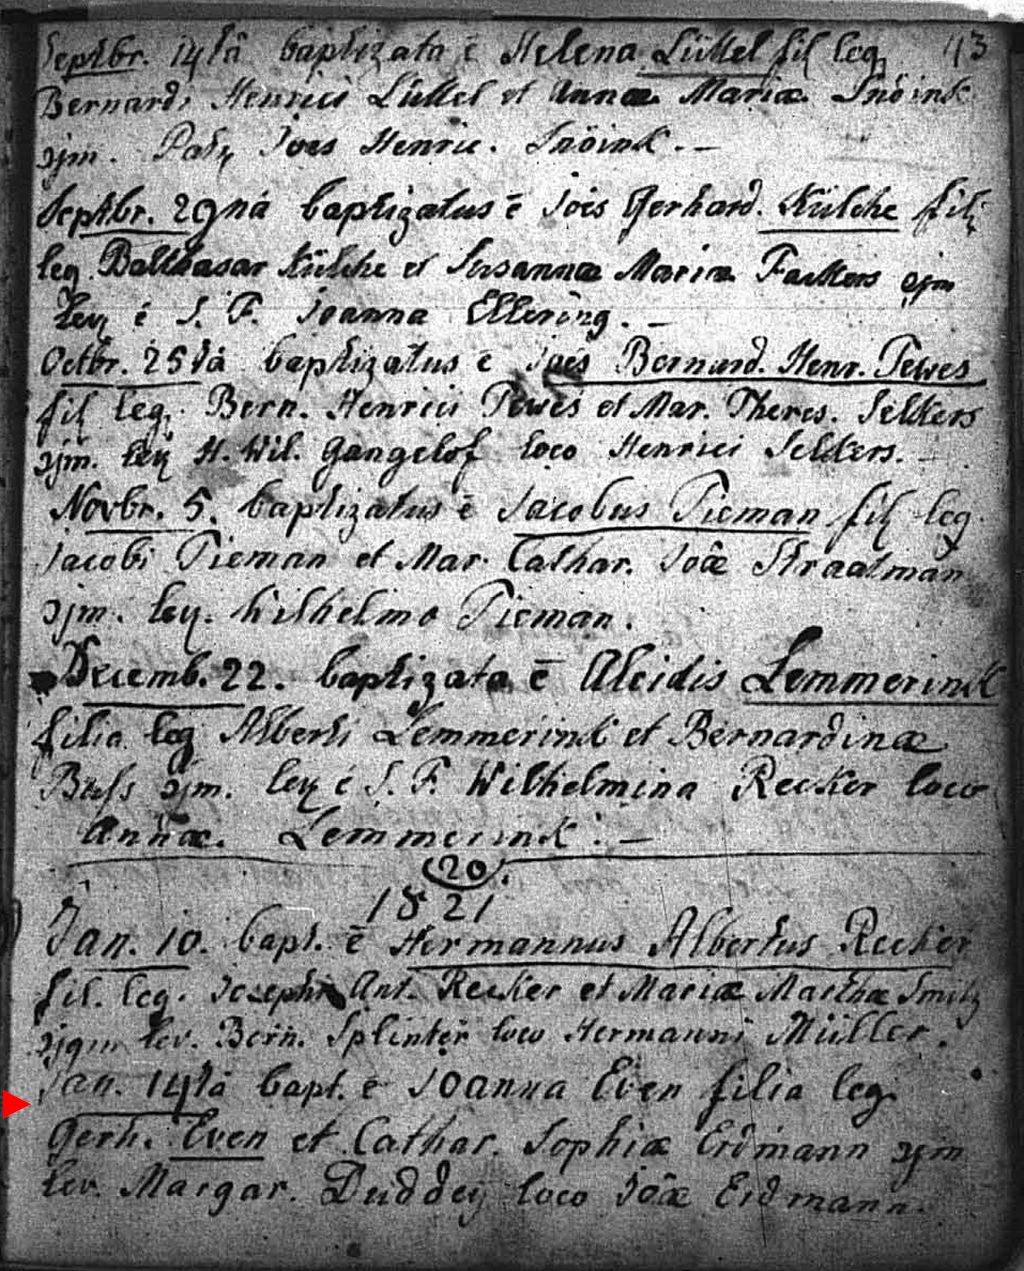 Septbr. 14tâ baptizata ē Helena Lüttel fil leg 43
Bernardi Henrici Lüttel et Annæ Mariæ Snöink
ejm. Joes Henric. Snöink. —
Septbr. 29nâ baptizatus ē Joës Gerhard. Külche fil
leg. Balthasar Külche et Susannæ Mariæ Fackters ejm
lev é S. F. Joanna Ellering. —
Octbr. 25tâ baptizatus ē Joës Bernard. Henr. Tewes
fil leg. Bern. Henrici Tewes et Mar. Theres. Selkers
ejm. lev H. Wil. Gangelof loco Henrici Selkers. —
Novbr. 5. baptizatus ē Jacobus Tieman fil leg
Jacobi Tieman et Mar. Cathar. Joæ Straatman
ejm. lev. Wilhelmo Tieman.
Decemb. 22. baptizata ē Aleidis Lemmerink
filia leg Alberti Lemmerink et Bernardinæ
Buss ejm. lev é S. F. Wilhelmina Recker loco
Annæ. Lemmerink. —
20.
1821
Jan. 10. bapt. ē Hermannus Albertus Recker
fil. leg. Josephi Ant. Recker et Mariæ Marthæ Smitz
ejqm lev. Bern. Splinter loco Hermanni Müller.
Jan. 14tâ bapt. ē Joanna Even filia leg.
Gerh. Even et Cathar. Sophiæ Erdmann ejm
lev. Margar. Duddey loco Joæ Erdmann.